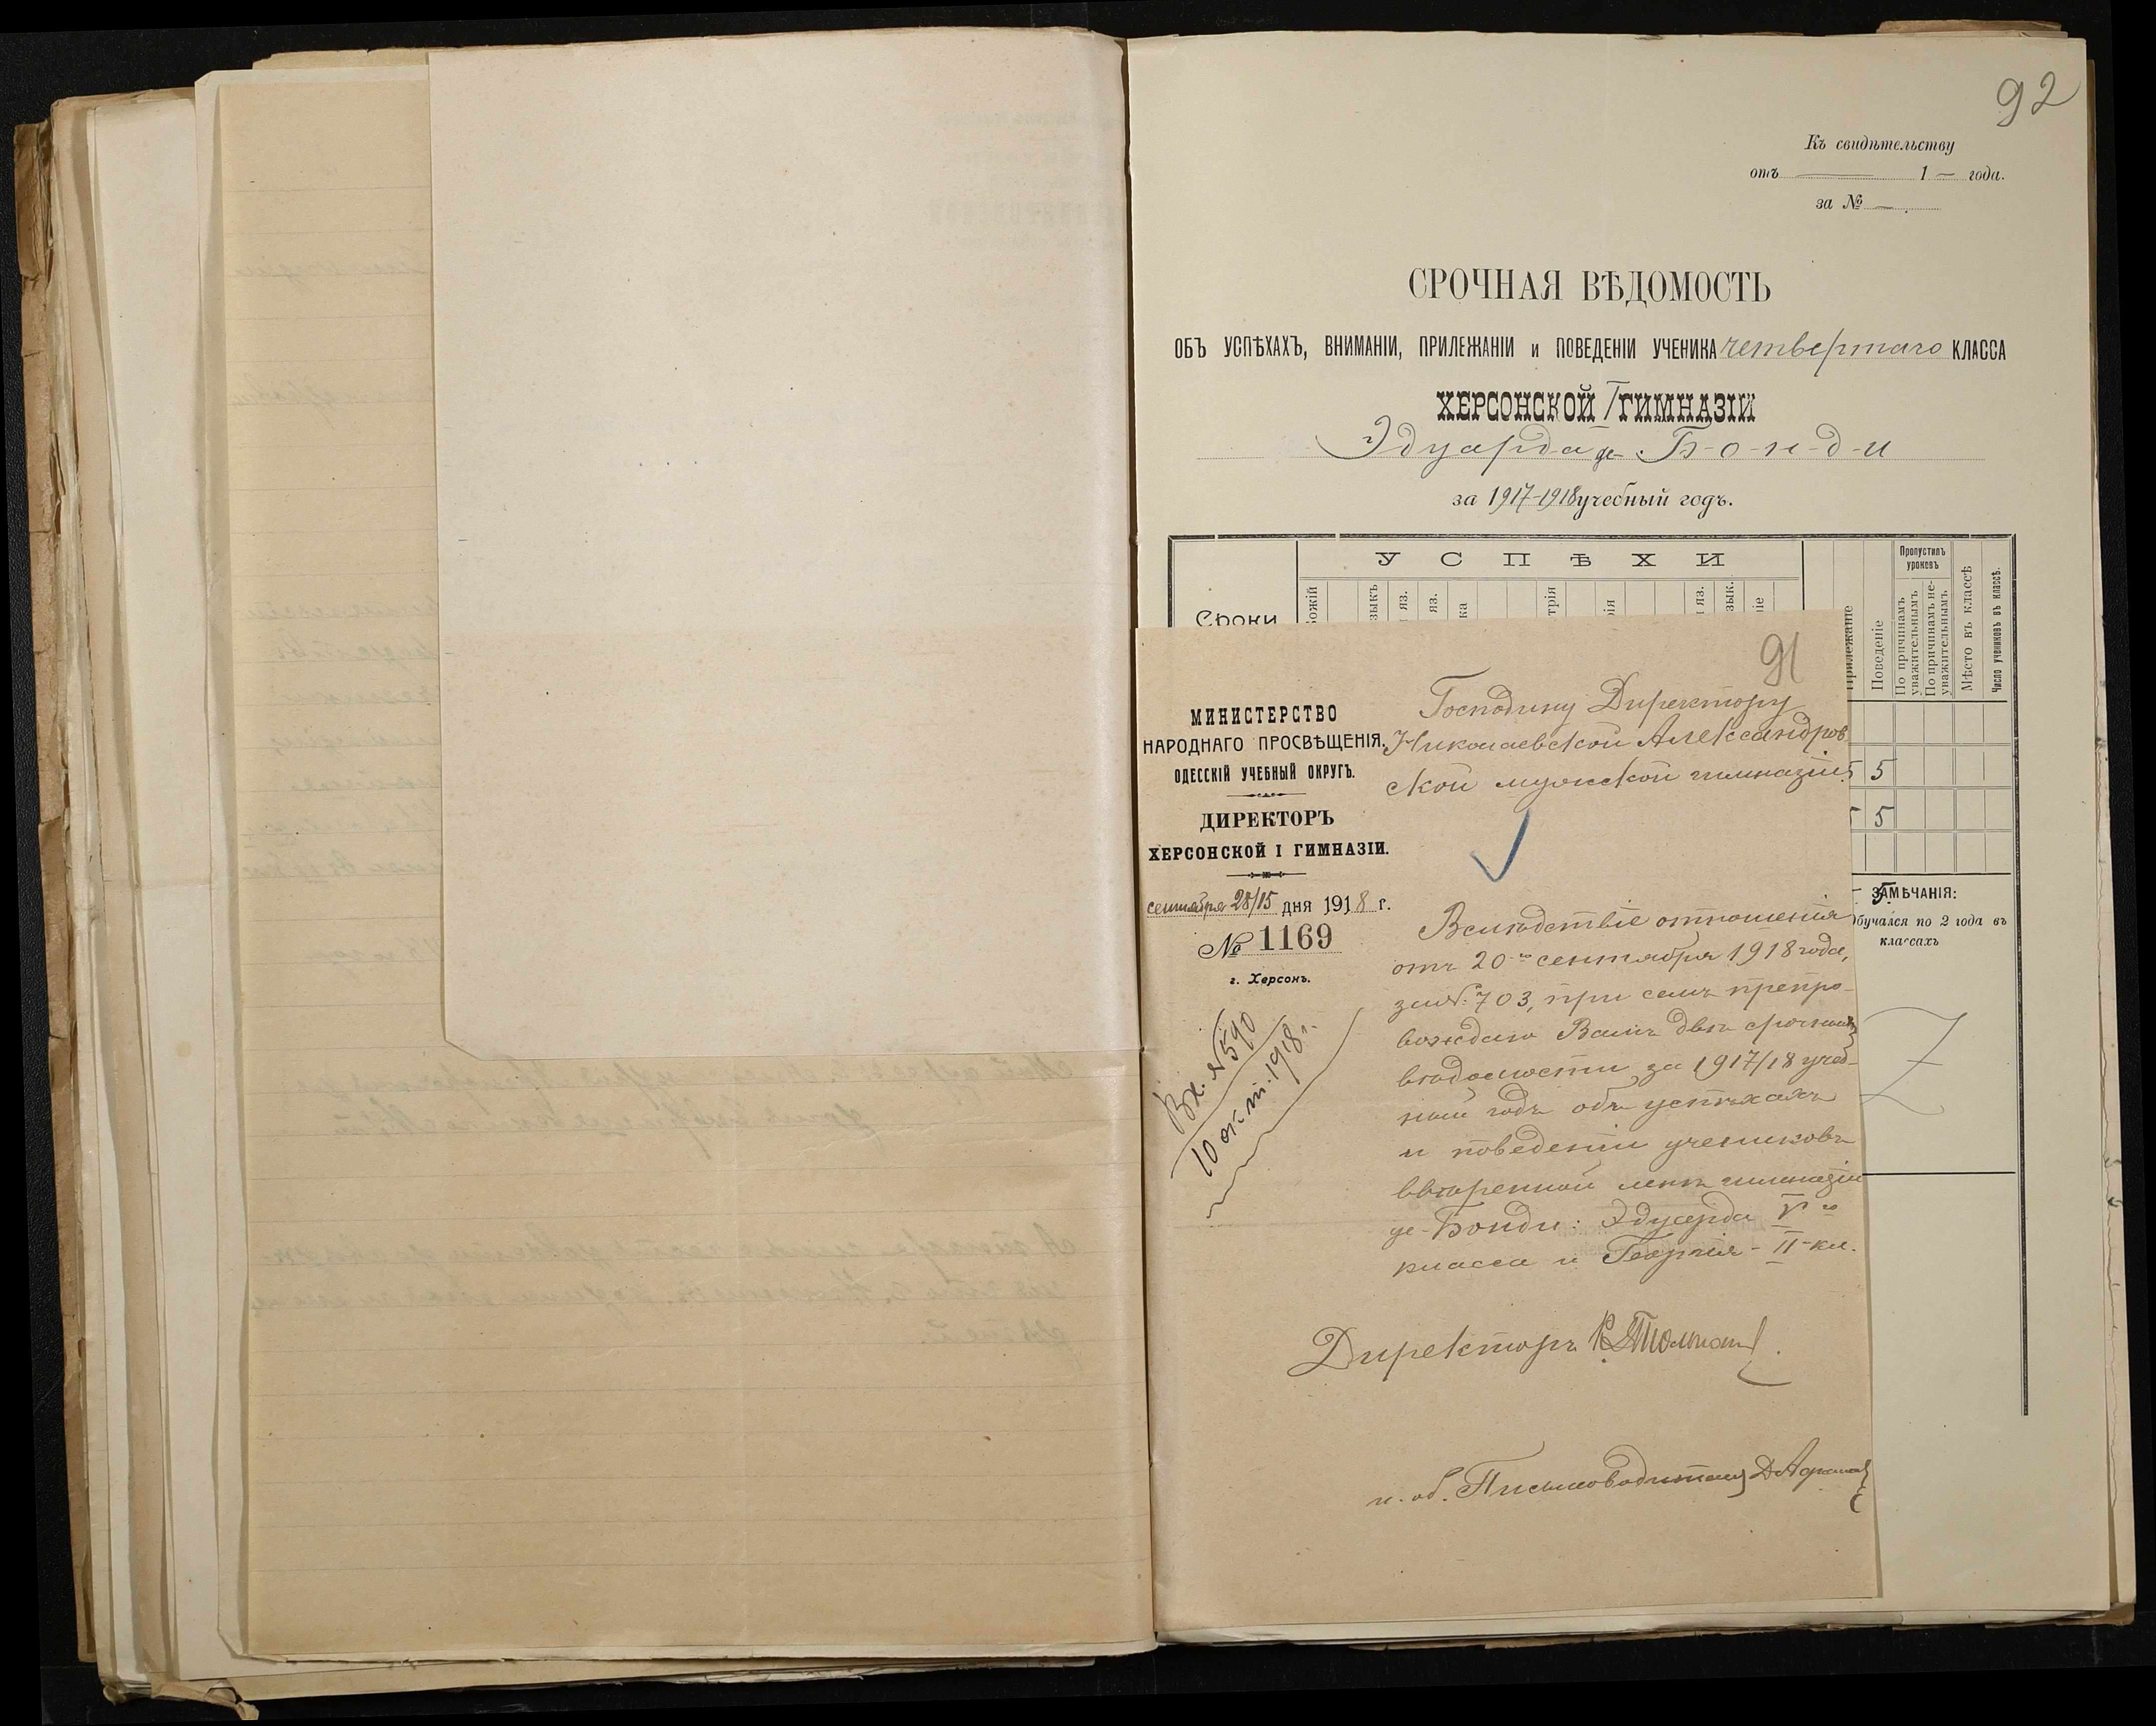 92
Къ свидѣтельству
отъ — 1 — года.
за № —
СРОЧНАЯ ВѢДОМОСТЬ
ОБЪ УСПѢХАХЪ, ВНИМАНІИ, ПРИЛЕЖАНІИ и ПОВЕДЕНІИ УЧЕНИКА четвертаго КЛАССА
ХЕРСОНСКОЙ I ГИМНАЗІИ
Эдуарда де-Б-о-н-д-и
за 1917-1918 учебный годъ.
УСПѢХИ
Сроки
ожій
зыкъ
яз.
яз.
ка
трія
ія
яз.
зык.
іе
Прилежаніе
Поведеніе
Пропустилъ уроковъ
По причинамъ уважительнымъ
По причинамъ неуважительнымъ.
Мѣсто въ классѣ
Число учениковъ въ классѣ.
5 5
5
5
ЗАМѢЧАНІЯ:
бучался по 2 года въ
классахъ
91
МИНИСТЕРСТВО
НАРОДНАГО ПРОСВѢЩЕНІЯ.
ОДЕССКІЙ УЧЕБНЫЙ ОКРУГЪ.
ДИРЕКТОРЪ
ХЕРСОНСКОЙ I ГИМНАЗІИ.
сентября 28/15 дня 1918 г.
№ 1169
г. Херсонъ.
Вх. № 590
10 окт. 1918 г.
Господину Директору
Николаевской Александров
ской мужской гимназіи.
Вслѣдствіе отношенія
отъ 20-го сентября 1918 года,
за № 703, при семъ препро-
вождаю Вамъ двѣ срочныя
вѣдомости за 1917/18 учеб-
ный годъ объ успѣхахъ
и поведеніи учениковъ
ввѣренной мнѣ гимназіи
де-Бонди: Эдуарда V-го
класса и Георгія - II-кл.
Директоръ
и. об. Письмоводителя